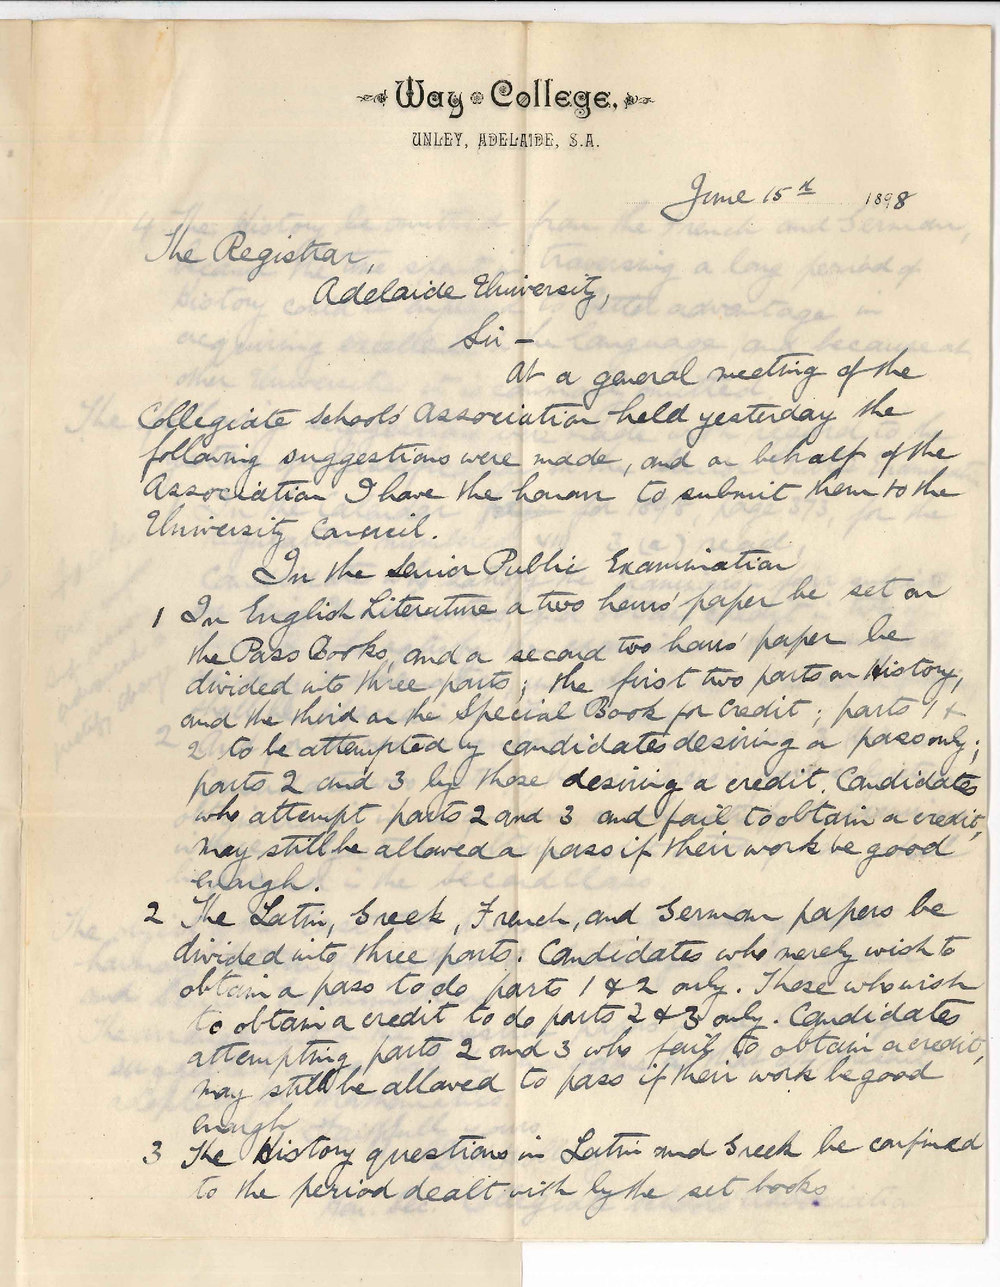 Way College,
UNLEY, ADELAIDE, S.A.
June 15th 1898
The Registrar,
Adelaide University,
Sir –
At a general meeting of the
Collegiate Schools' Association held yesterday the
following suggestions were made, and on behalf of the
Association I have the honour to submit them to the
University Council.
In the Senior Public Examination
1 In English Literature a two hours' paper be set on
the Pass Books, and a second two hours' paper be
divided into three parts; the first two parts on History,
and the third on the Special Book for Credit; parts 1 &
2 to be attempted by candidates desiring a pass only;
parts 2 and 3 by those desiring a credit. Candidates
who attempt parts 2 and 3 and fail to obtain a credit,
may still be allowed a pass if their work be good
enough.
2 The Latin, Greek, French, and German papers be
divided into three parts. Candidates who merely wish to
obtain a pass to do parts 1 & 2 only. Those who wish
to obtain a credit to do parts 2 & 3 only. Candidates
attempting parts 2 and 3 who fail to obtain a credit,
may still be allowed to pass if their work be good
enough
3 The History questions in Latin and Greek be confined
to the period dealt with by the set books